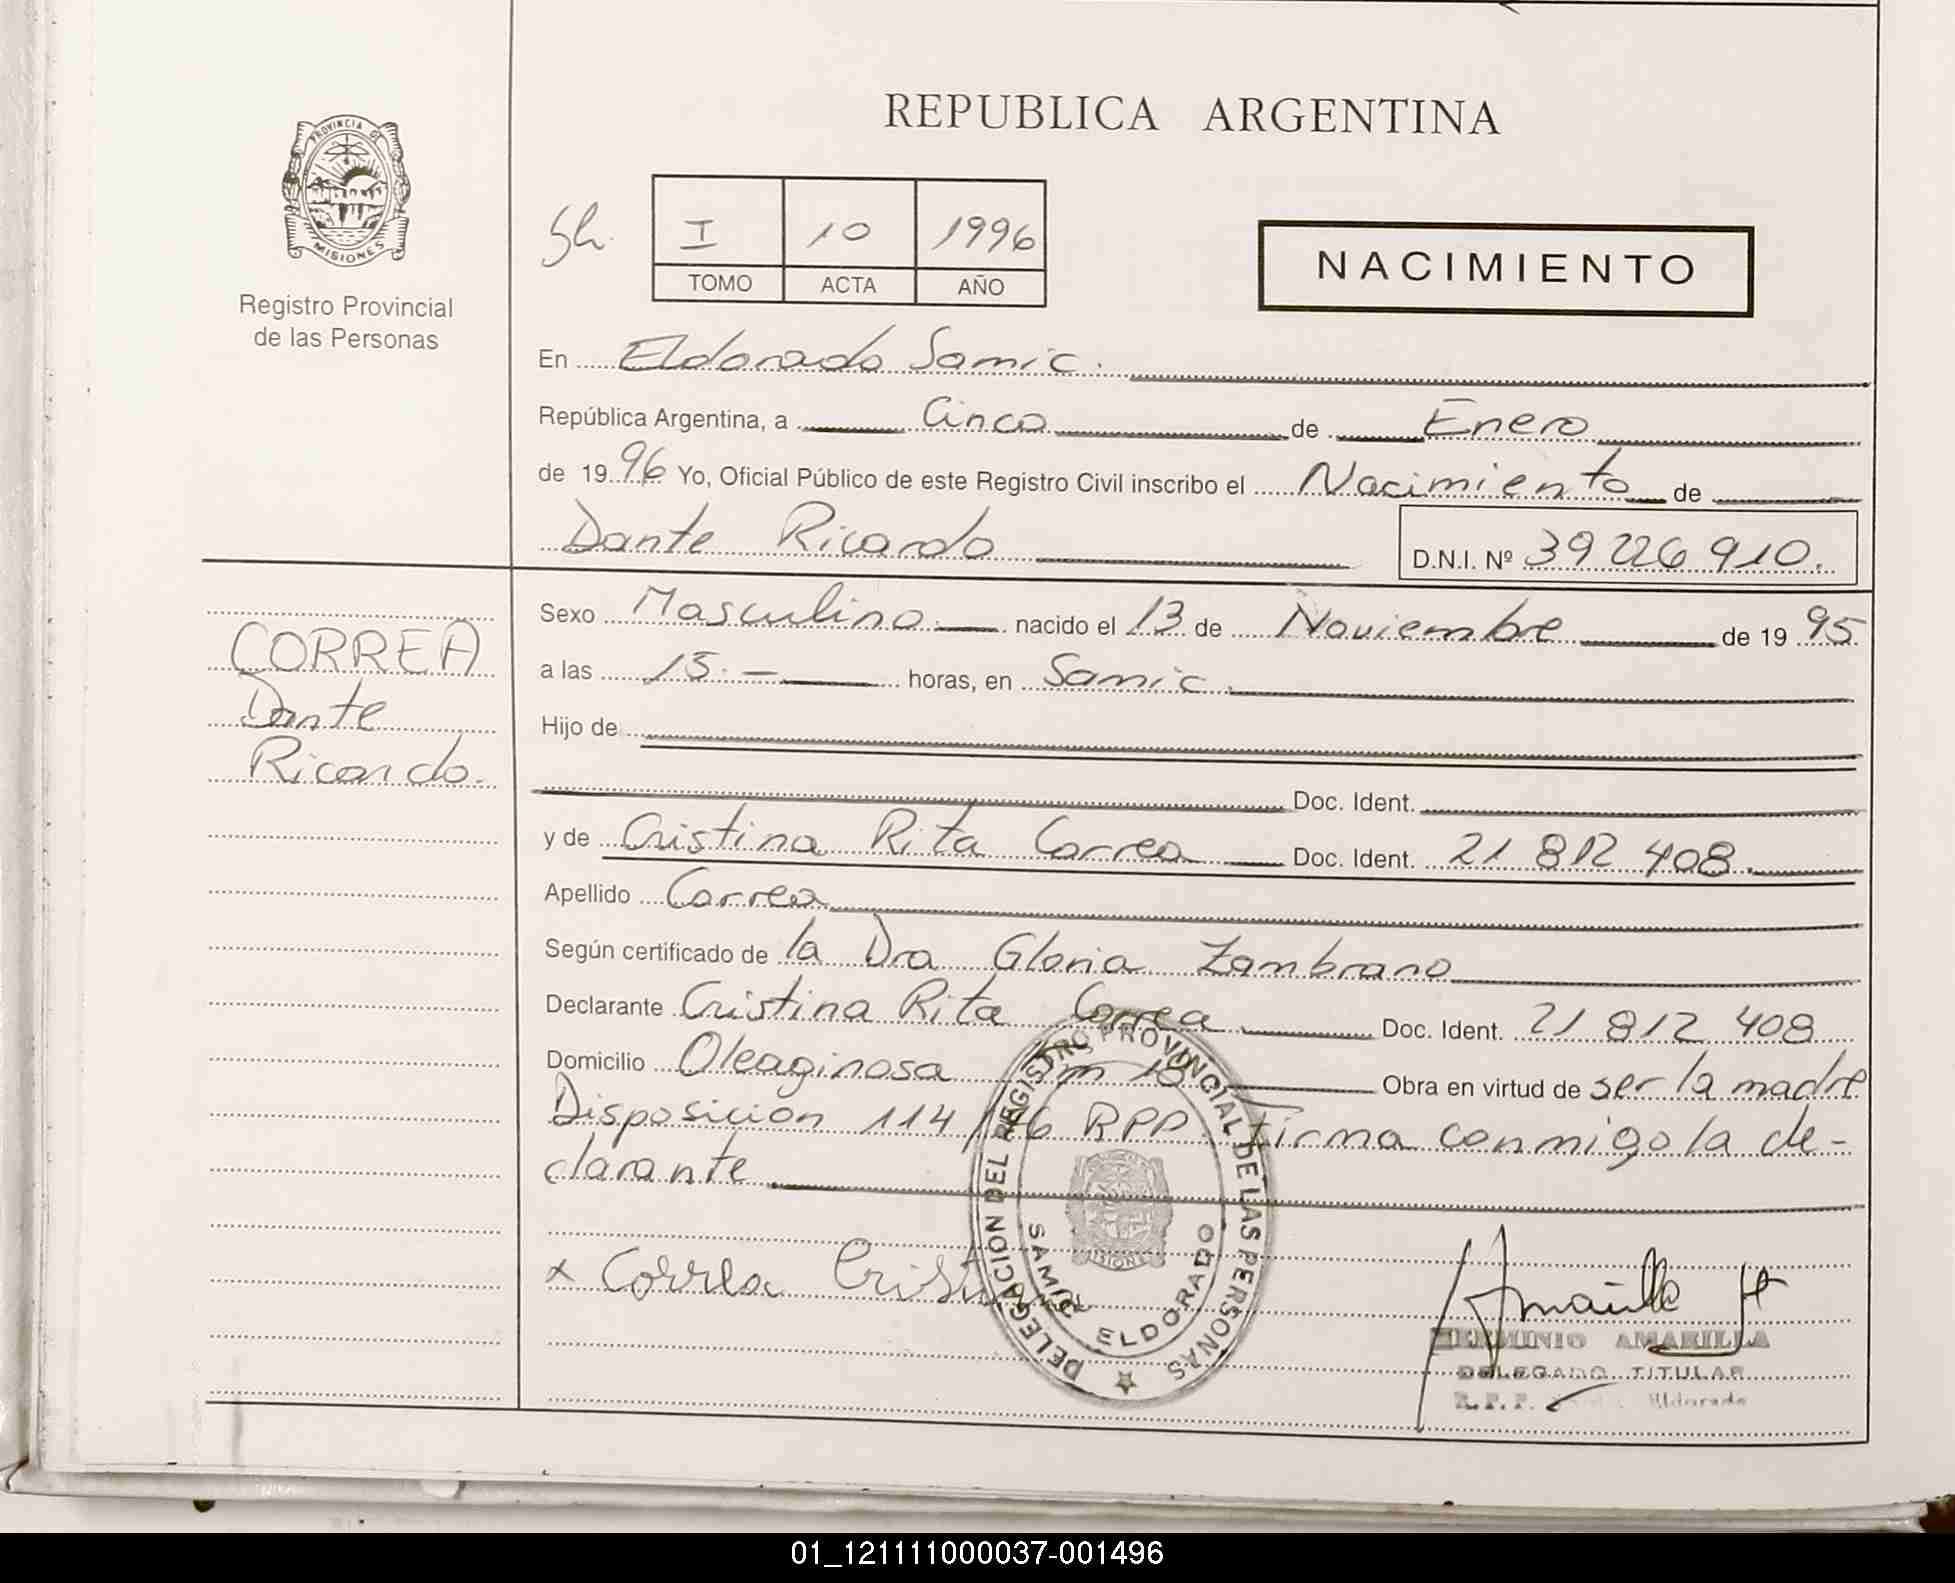 REPUBLICA ARGENTINA
PROVINCIA DE
MISIONES
Registro Provincial
de las Personas
I 10 1996
TOMO ACTA AÑO
NACIMIENTO
En Eldorado Samic.
República Argentina, a Cinco de Enero
de 1996 Yo, Oficial Público de este Registro Civil inscribo el Nacimiento de
Dante Ricardo D.N.I. Nº 39 226 910.
CORREA
Dante
Ricardo.
Sexo Masculino nacido el 13 de Noviembre de 1995
a las 15.- horas, en Samic.
Hijo de
Doc. Ident.
y de Cristina Rita Correa Doc. Ident. 21 812 408.
Apellido Correa
Según certificado de la Dra Gloria Zambrano
Declarante Cristina Rita Correa Doc. Ident. 21 812 408
Domicilio Oleaginosa Km 18 Obra en virtud de ser la madre
Disposición 114/ RPP. Firma conmigo la de-
clarante
x Correa Cristina
DELEGACION DEL REGISTRO PROVINCIAL DE LAS PERSONAS
SAMIC ELDORADO
MISIONES
Amarilla H
HERMINIO AMARILLA
DELEGADO TITULAR
R.P.P. Eldorado
01_121111000037-001496